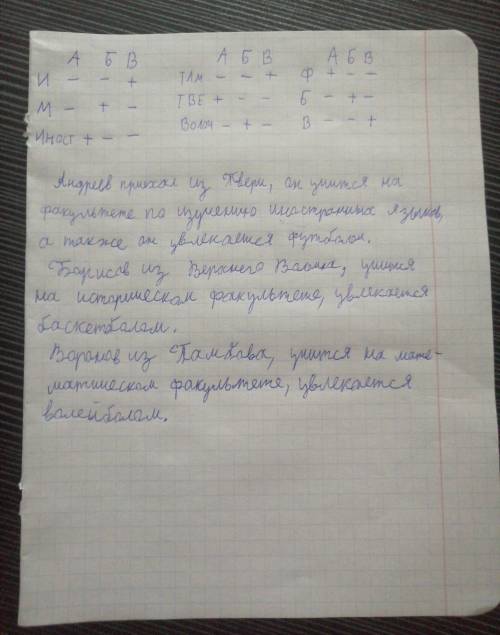 А Б В А Б В А Б В
И - - + ТАМ - - + Ф + - -
М - + - ТВЕ + - - Б - + -
Иност + - - Волоч - + - В - - +
Андреев приехал из Твери, он учится на
факультете по изучению иностранных языков,
а также он увлекается футболом.
Борисов из Верхнего учится
на историческом факультете, увлекается
баскетболом.
Воронов из Тамбова, учится на мате-
матическом факультете, увлекается
волейболом.